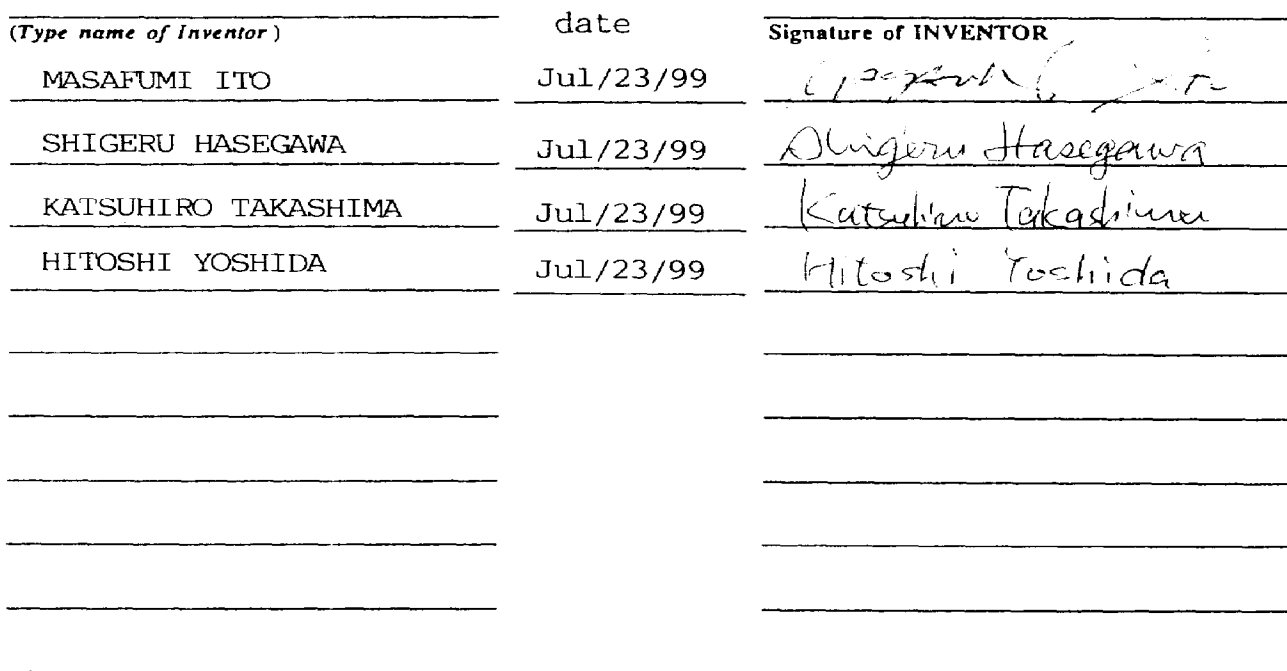 (Type name of Inventor) date Signature of INVENTOR
MASAFUMI ITO Jul/23/99
SHIGERU HASEGAWA Jul/23/99 Shigeru Hasegawa
KATSUHIRO TAKASHIMA Jul/23/99 Katsuhiro Takashima
HITOSHI YOSHIDA Jul/23/99 Hitoshi Yoshida